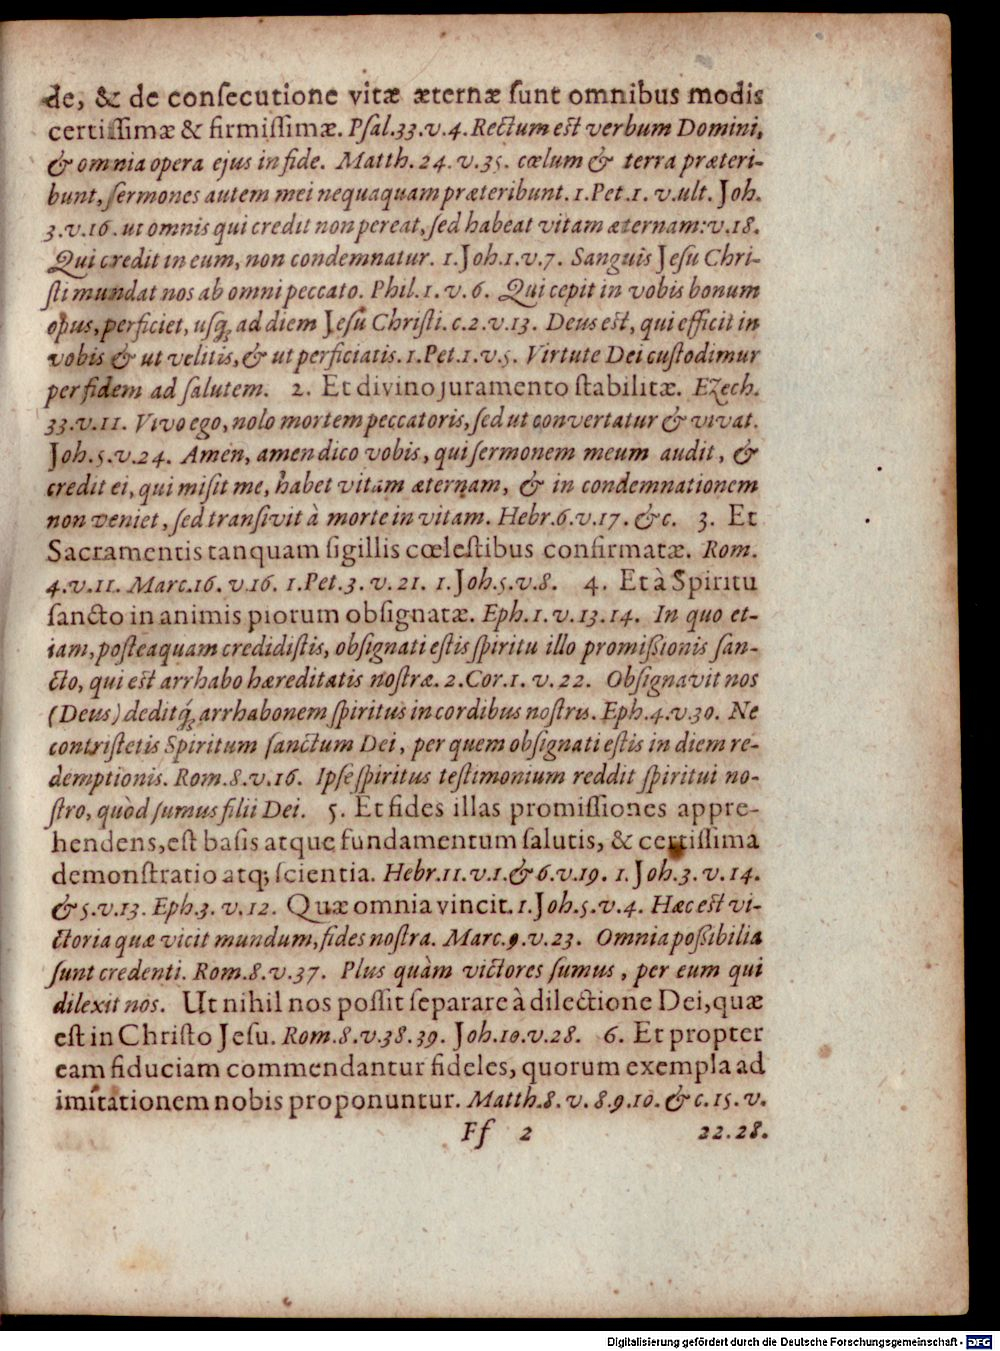 de, & de conſecutione vitæ æternæ ſunt omnibus modis
certiſſimæ & firmiſſimæ. Pſal.33.v.4. Rectum eſt verbum Domini,
& omnia opera ejus in fide. Matth.24.v.35. cœlum & terra præteri-
bunt, ſermones autem mei nequaquam præteribunt. 1.Pet.1. v.ult. Joh.
3.v.16. ut omnis qui credit non pereat, ſed habeat vitam æternam: v.18.
Qui credit in eum, non condemnatur. 1.Joh.1.v.7. Sanguis Jeſu Chri-
ſti mundat nos ab omni peccato. Phil.1.v.6. Qui cepit in vobis bonum
opus, perficiet, uſq; ad diem Jeſu Chriſti. c.2.v.13. Deus eſt, qui efficit in
vobis & ut velitis, & ut perficiatis. 1.Pet.1.v.5. Virtute Dei cuſtodimur
per fidem ad ſalutem. 2. Et divino juramento ſtabilitæ. Ezech.
33.v.11. Vivo ego, nolo mortem peccatoris, ſed ut convertatur & vivat.
Joh.5.v.24. Amen, amen dico vobis, qui ſermonem meum audit, &
credit ei, qui miſit me, habet vitam æternam, & in condemnationem
non veniet, ſed tranſivit à morte in vitam. Hebr.6.v.17. &c. 3. Et
Sacramentis tanquam ſigillis cœleſtibus confirmatæ. Rom.
4.v.11. Marc.16.v.16. 1.Pet.3.v.21. 1.Joh.5.v.8. 4. Et à Spiritu
ſancto in animis piorum obſignatæ. Eph.1.v.13.14. In quo et-
iam, poſteaquam credidiſtis, obſignati eſtis ſpiritu illo promiſſionis ſan-
cto, qui eſt arrhabo hæreditatis noſtræ. 2.Cor.1.v.22. Obſignavit nos
(Deus) deditq́; arrhabonem ſpiritus in cordibus noſtris. Eph.4.v.30. Ne
contriſtetis Spiritum ſanctum Dei, per quem obſignati eſtis in diem re-
demptionis. Rom.8.v.16. Ipſe ſpiritus teſtimonium reddit ſpiritui no-
ſtro, quòd ſumus filii Dei. 5. Et fides illas promiſſiones appre-
hendens, eſt baſis atque fundamentum ſalutis, & certiſſima
demonſtratio atq; ſcientia. Hebr.11.v.1. & 6.v.19. 1.Joh.3.v.14.
& 5.v.13. Eph.3.v.12. Quæ omnia vincit. 1.Joh.5.v.4. Hæc eſt vi-
ctoria quæ vicit mundum, fides noſtra. Marc.9.v.23. Omnia poſſibilia
ſunt credenti. Rom.8.v.37. Plus quàm victores ſumus, per eum qui
dilexit nos. Ut nihil nos poſſit ſeparare à dilectione Dei, quæ
eſt in Chriſto Jeſu. Rom.8.v.38.39. Joh.10.v.28. 6. Et propter
eam fiduciam commendantur fideles, quorum exempla ad
imitationem nobis proponuntur. Matth.8.v.8.9.10. & c.15.v.
Ff 2 22.28.
Digitalisierung gefördert durch die Deutsche Forschungsgemeinschaft - DFG